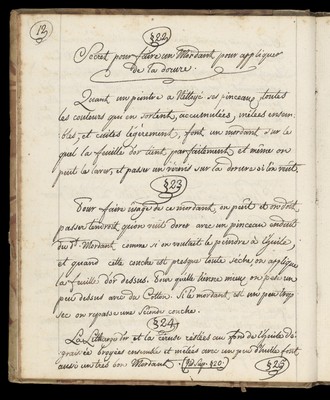 12
§22
Secret pour faire un Mordant pour appliquer
de la dorure.
Quant un peintre a nettoyé ses pinceaux, toutes
les couleurs qui en sortent, accumulées, mêlées ensem-
bles, et cuites légèrement, font un mordant sur le
quel la feuille d'or tient parfaitement, et même on
peut la laver, et passer un vernis sur la dorure si l'on veut.
§23
Pour faire usage de ce mordant, on peut et on doit
passer l'endroit qu'on veut dorer avec un pinceau enduit
du dt. Mordant comme si on voulait le peindre à l'huile,
et quand cette couche est presque toute sèche on applique
la feuille d'or dessus. Pour quelle tienne mieux on pese un
peu dessus avec du Cotton. Si le mordant, est un peu trop
sec on repasse une seconde couche.
§24
La Litharge d'or et la Ceruse restées au fond de l'huile dé-
graissée broyées ensemble et mêlées avec un peu d'huile font
aussi un très bon Mordant. (Vid. Sup. §20.)
§25